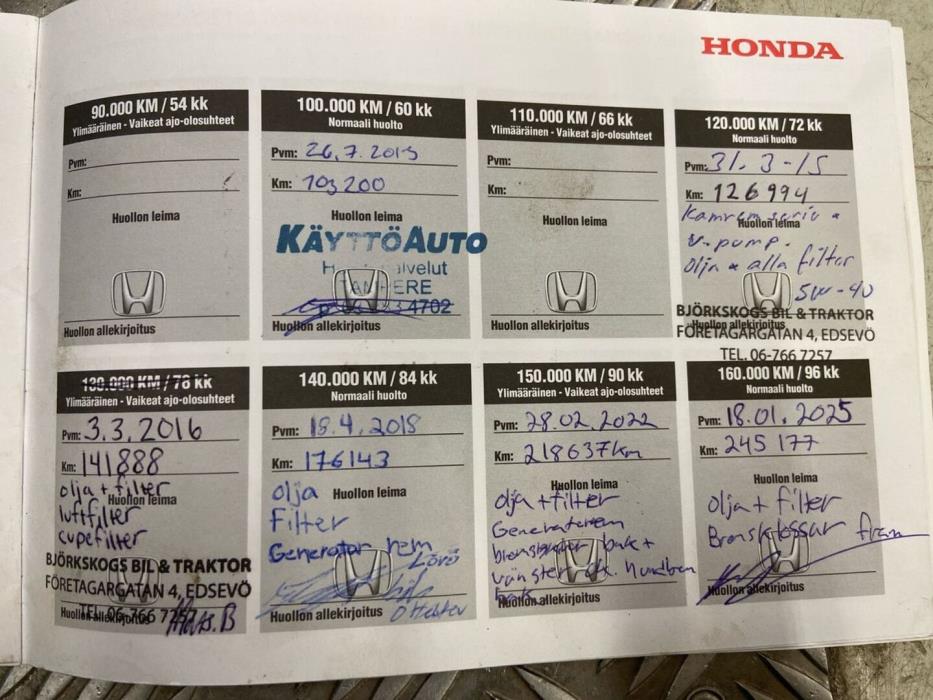 HONDA
90.000 KM / 54 kk
Ylimääräinen - Vaikeat ajo-olosuhteet
Pvm:
Km:
Huollon leima
Huollon allekirjoitus
100.000 KM / 60 kk
Normaali huolto
Pvm: 26.7.2013
Km: 103200
Huollon leima
KÄYTTÖAUTO
TAMPERE
4702
Huollon allekirjoitus
110.000 KM / 66 kk
Ylimääräinen - Vaikeat ajo-olosuhteet
Pvm:
Km:
Huollon leima
Huollon allekirjoitus
120.000 KM / 72 kk
Normaali huolto
Pvm: 31.3-15
Km: 126994
Huollon leima
v-pump.
olja & alla filter
5W-40
BJÖRKSKOGS BIL & TRAKTOR
Huollon allekirjoitus
FÖRETAGARGATAN 4, EDSEVÖ
TEL. 06-766 7257
130.000 KM / 78 kk
Ylimääräinen - Vaikeat ajo-olosuhteet
Pvm: 3.3.2016
Km: 141888
olja + filter
Huollon leima
luftfilter
cupefilter
BJÖRKSKOGS BIL & TRAKTOR
FÖRETAGARGATAN 4, EDSEVÖ
TEL 06-766 7257
Huollon allekirjoitus
140.000 KM / 84 kk
Normaali huolto
Pvm: 18.4.2018
Km: 176143
olja
Huollon leima
Filter
Generator rem
Huollon allekirjoitus
150.000 KM / 90 kk
Ylimääräinen - Vaikeat ajo-olosuhteet
Pvm: 28.02.2022
Km: 218637km
Huollon leima
olja + filter
bak +
vänster
bak
Huollon allekirjoitus
160.000 KM / 96 kk
Normaali huolto
Pvm: 18.01.2025
Km: 245 177
Huollon leima
olja + filter
Bromsklossar fram
Huollon allekirjoitus